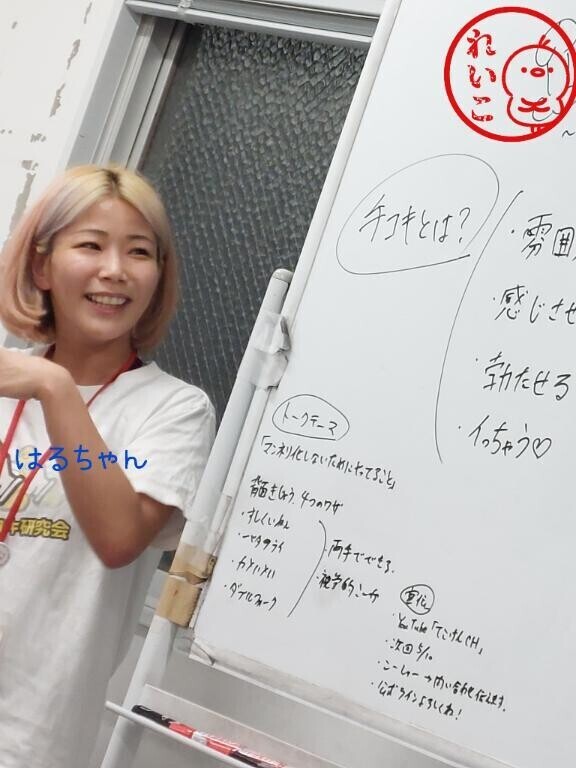 れいこ
手コキとは?
・雰囲
・感じさせ
・勃たせる
・イっちゃう♡
はるちゃん
研究会
トークテーマ
「マンネリ化しないためにやってること」
4つのワザ
・ダブルフォーク
・両手でできる。
・視覚的
宣伝
・YouTube「てこけんCH」
・次回 5/10
・公式ラインよろしくね!